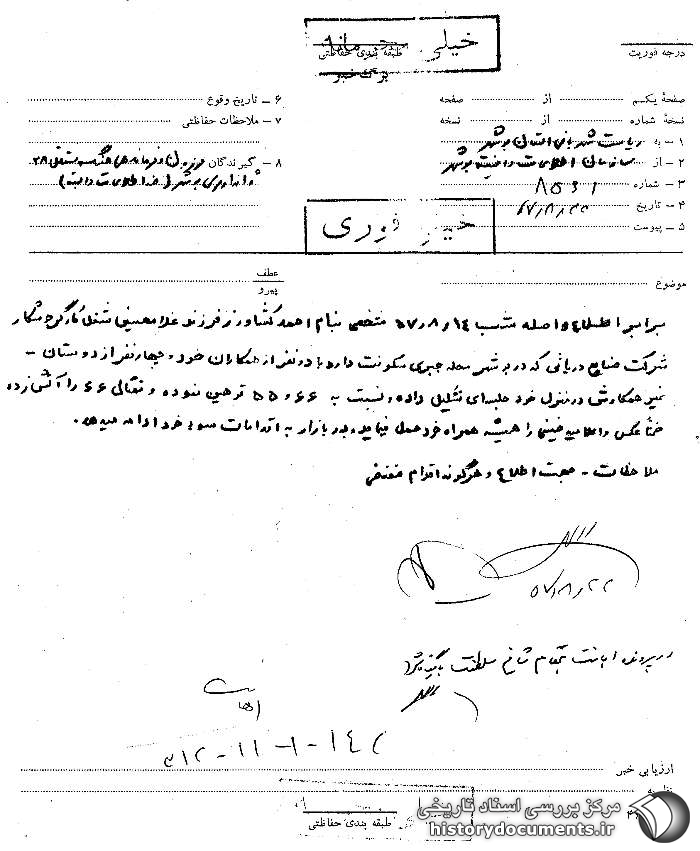 خیلی محرمانه
درجه فوریت
طبقه بندی حفاظتی
برگ خبر
صفحهٔ یکم از صفحه
نسخهٔ شماره از نسخه
۱ - به ریاست شهربانی استان بوشهر
۲ - از سازمان اطلاعات و امنیت بوشهر
۳ - شماره
۴ - تاریخ ۵۷/۸/۲۲
۵ - پیوست
۶ - تاریخ وقوع
۷ - ملاحظات حفاظتی
۸ - گیرندگان
خیلی فوری
موضوع
عطف
پیرو
برابر اطلاع واصله شب ۵۷/۸/۱۴ شخصی بنام احمد کشاورز فرزند غلامحسین شغل کارگر
شرکت صنایع دریائی که در بوشهر محله جبری سکونت دارد با دو نفر از همکاران خود و چهار نفر از دوستان -
غیر همکارش در منزل خود جلسه‌ای تشکیل داده و نسبت به ۶۶ و ۵۵ توهین نموده و تمثال ۶۶ را آتش زده
ضمناً عکس و اعلامیه خمینی را همیشه همراه خود حمل مینماید و در بازار به اقدامات سوء خود ادامه میدهد.
ملاحظات - جهت اطلاع و هرگونه اقدام مقتضی
۵۷/۸/۲۲
در پرونده اهانت بمقام شامخ سلطنت بایگانی شود
اهانت
۳۱۲-۱۱-۱-۱۴
ارزیابی خبر
نظریه
طبقه بندی حفاظتی
مرکز بررسی اسناد تاریخی
historydocuments.ir